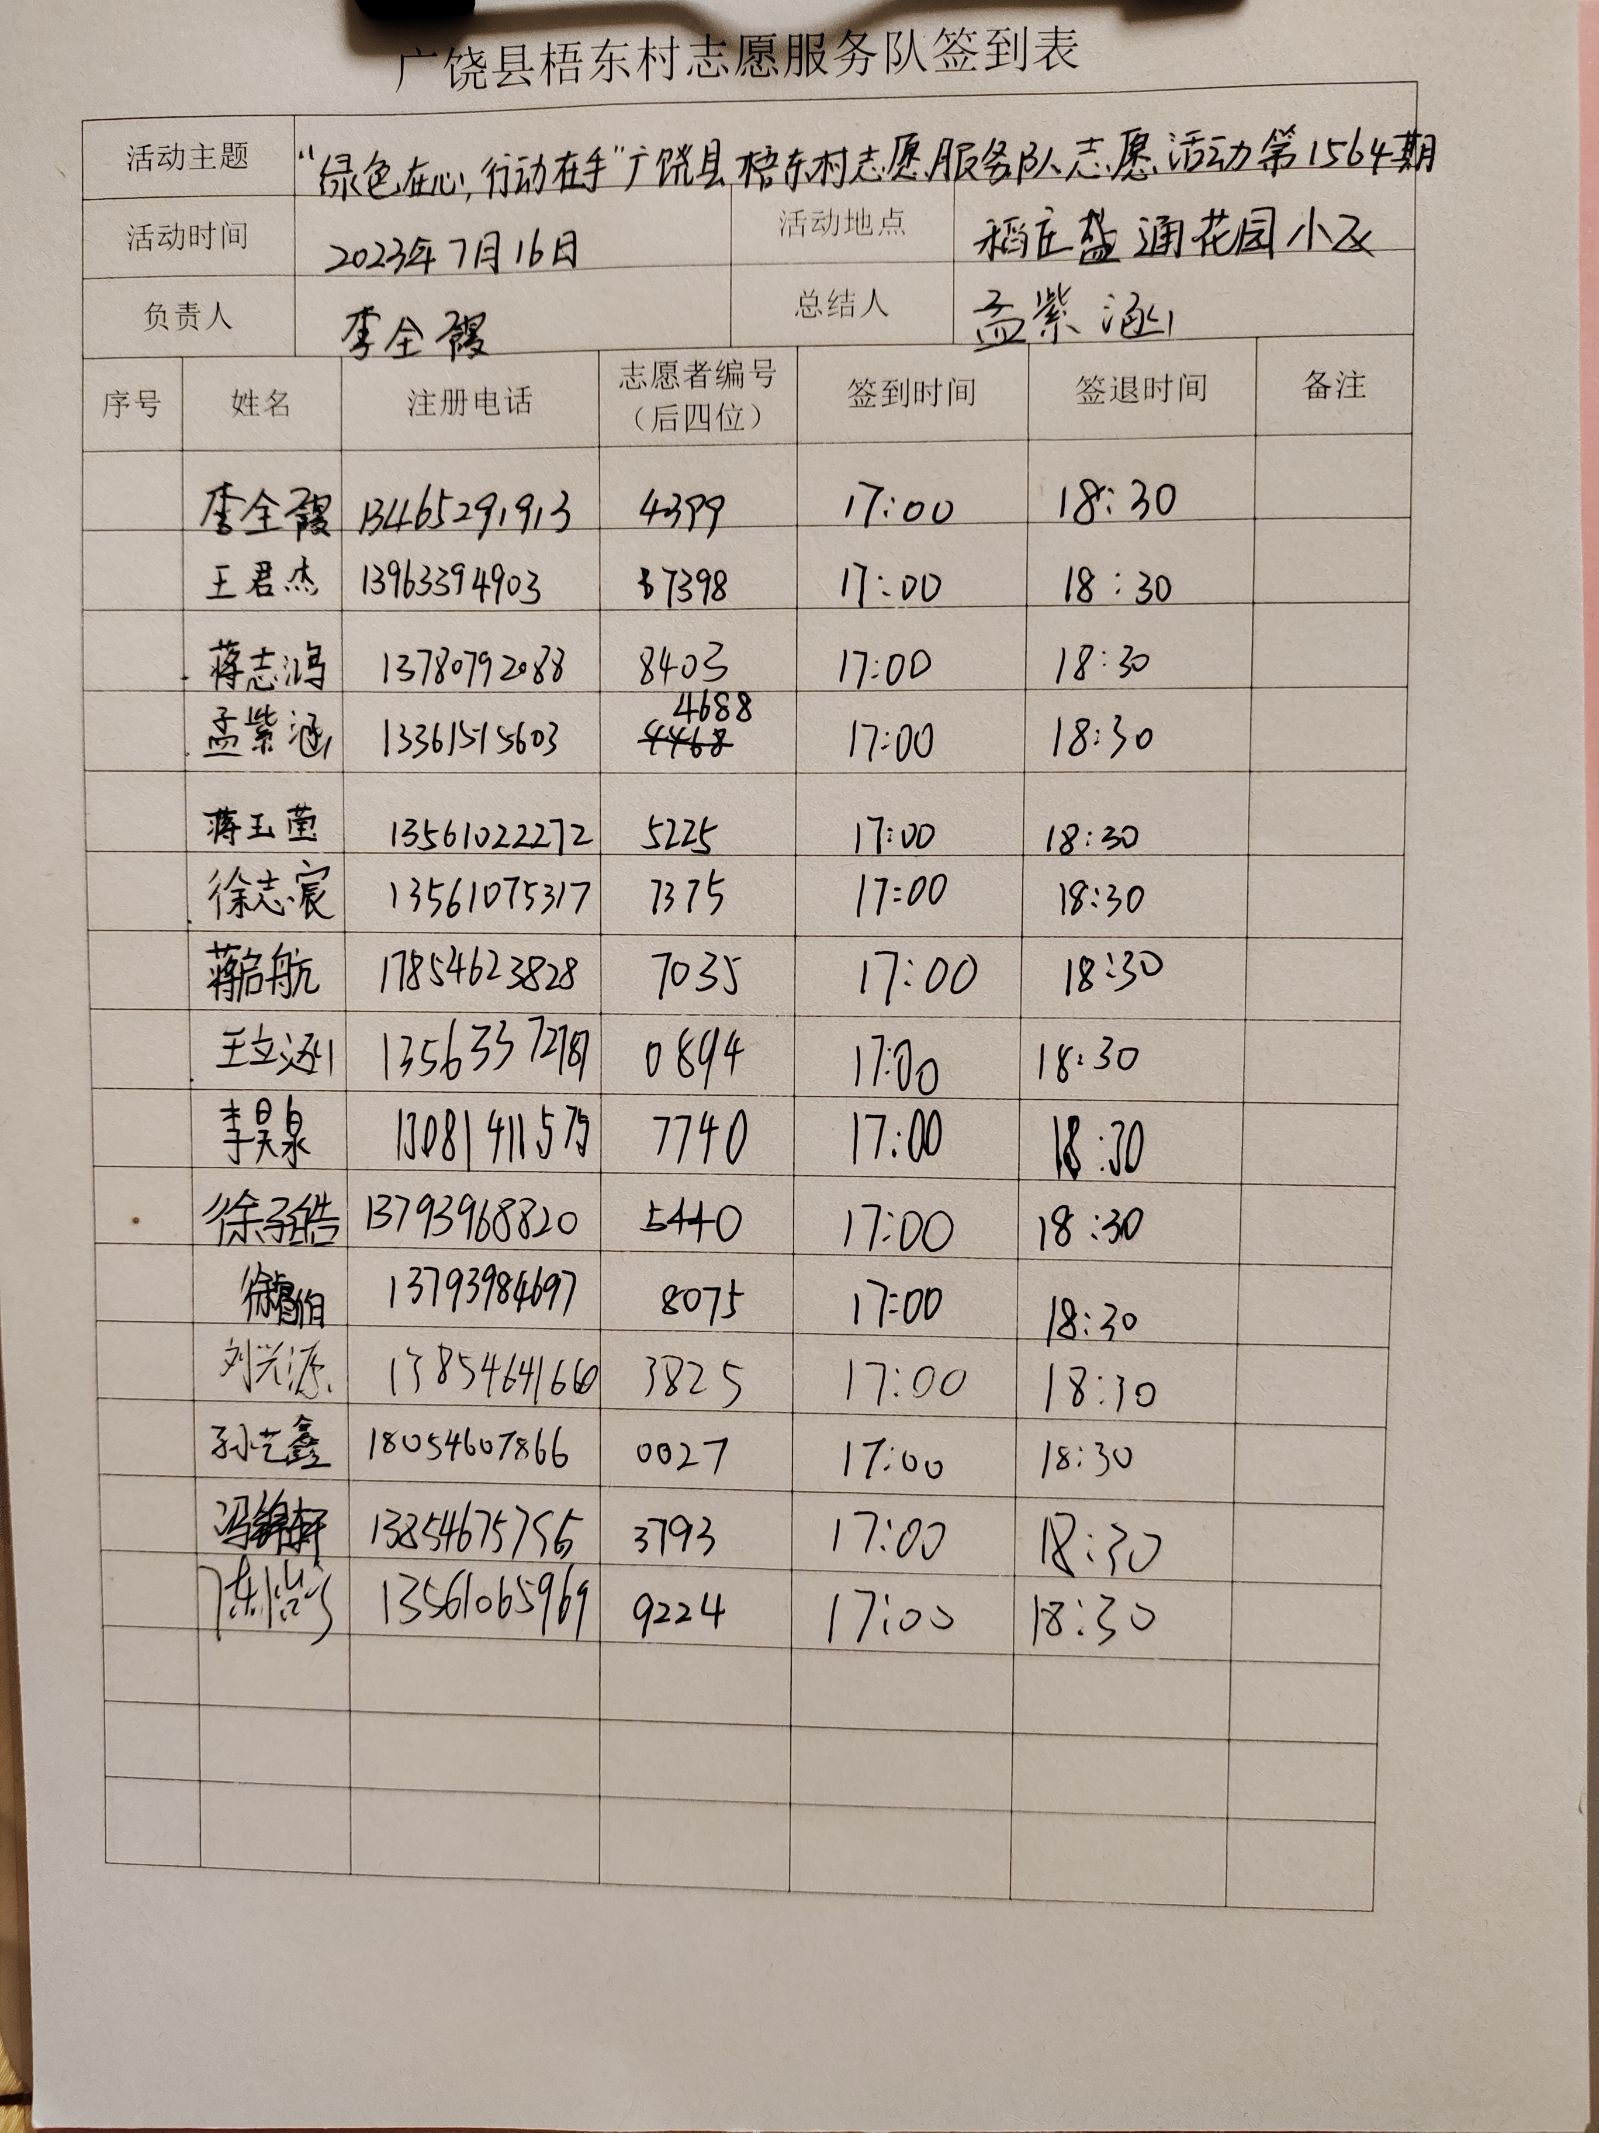 广饶县梧东村志愿服务队签到表
活动主题 “绿色在心,行动在手”广饶县梧东村志愿服务队志愿活动第1564期
活动时间 2023年7月16日 活动地点 稻庄盛通花园小区
负责人 李全霞 总结人 孟紫涵
序号 姓名 注册电话 志愿者编号 签到时间 签退时间 备注
（后四位）
李全霞 13465291913 4399 17:00 18:30
王君杰 13963394903 7398 17:00 18:30
蒋志鸿 13780792088 8403 17:00 18:30
4688
孟紫涵 13361515603 4468 17:00 18:30
蒋玉莹 13561022272 5225 17:00 18:30
徐志宸 13561075317 7375 17:00 18:30
蒋启航 17854623828 7035 17:00 18:30
王立涵 17:00 18:30 0894
李昊泉 7740 17:00 18:30
徐子皓 13793968820 5440 17:00 18:30
13793984697 8075 17:00 18:30
刘兴源 13854641660 3825 17:00 18:30
孙艺鑫 18054607866 0027 17:00 18:30
冯锦轩 3793 17:00 18:30
陈 13561065969 9224 17:00 18:30